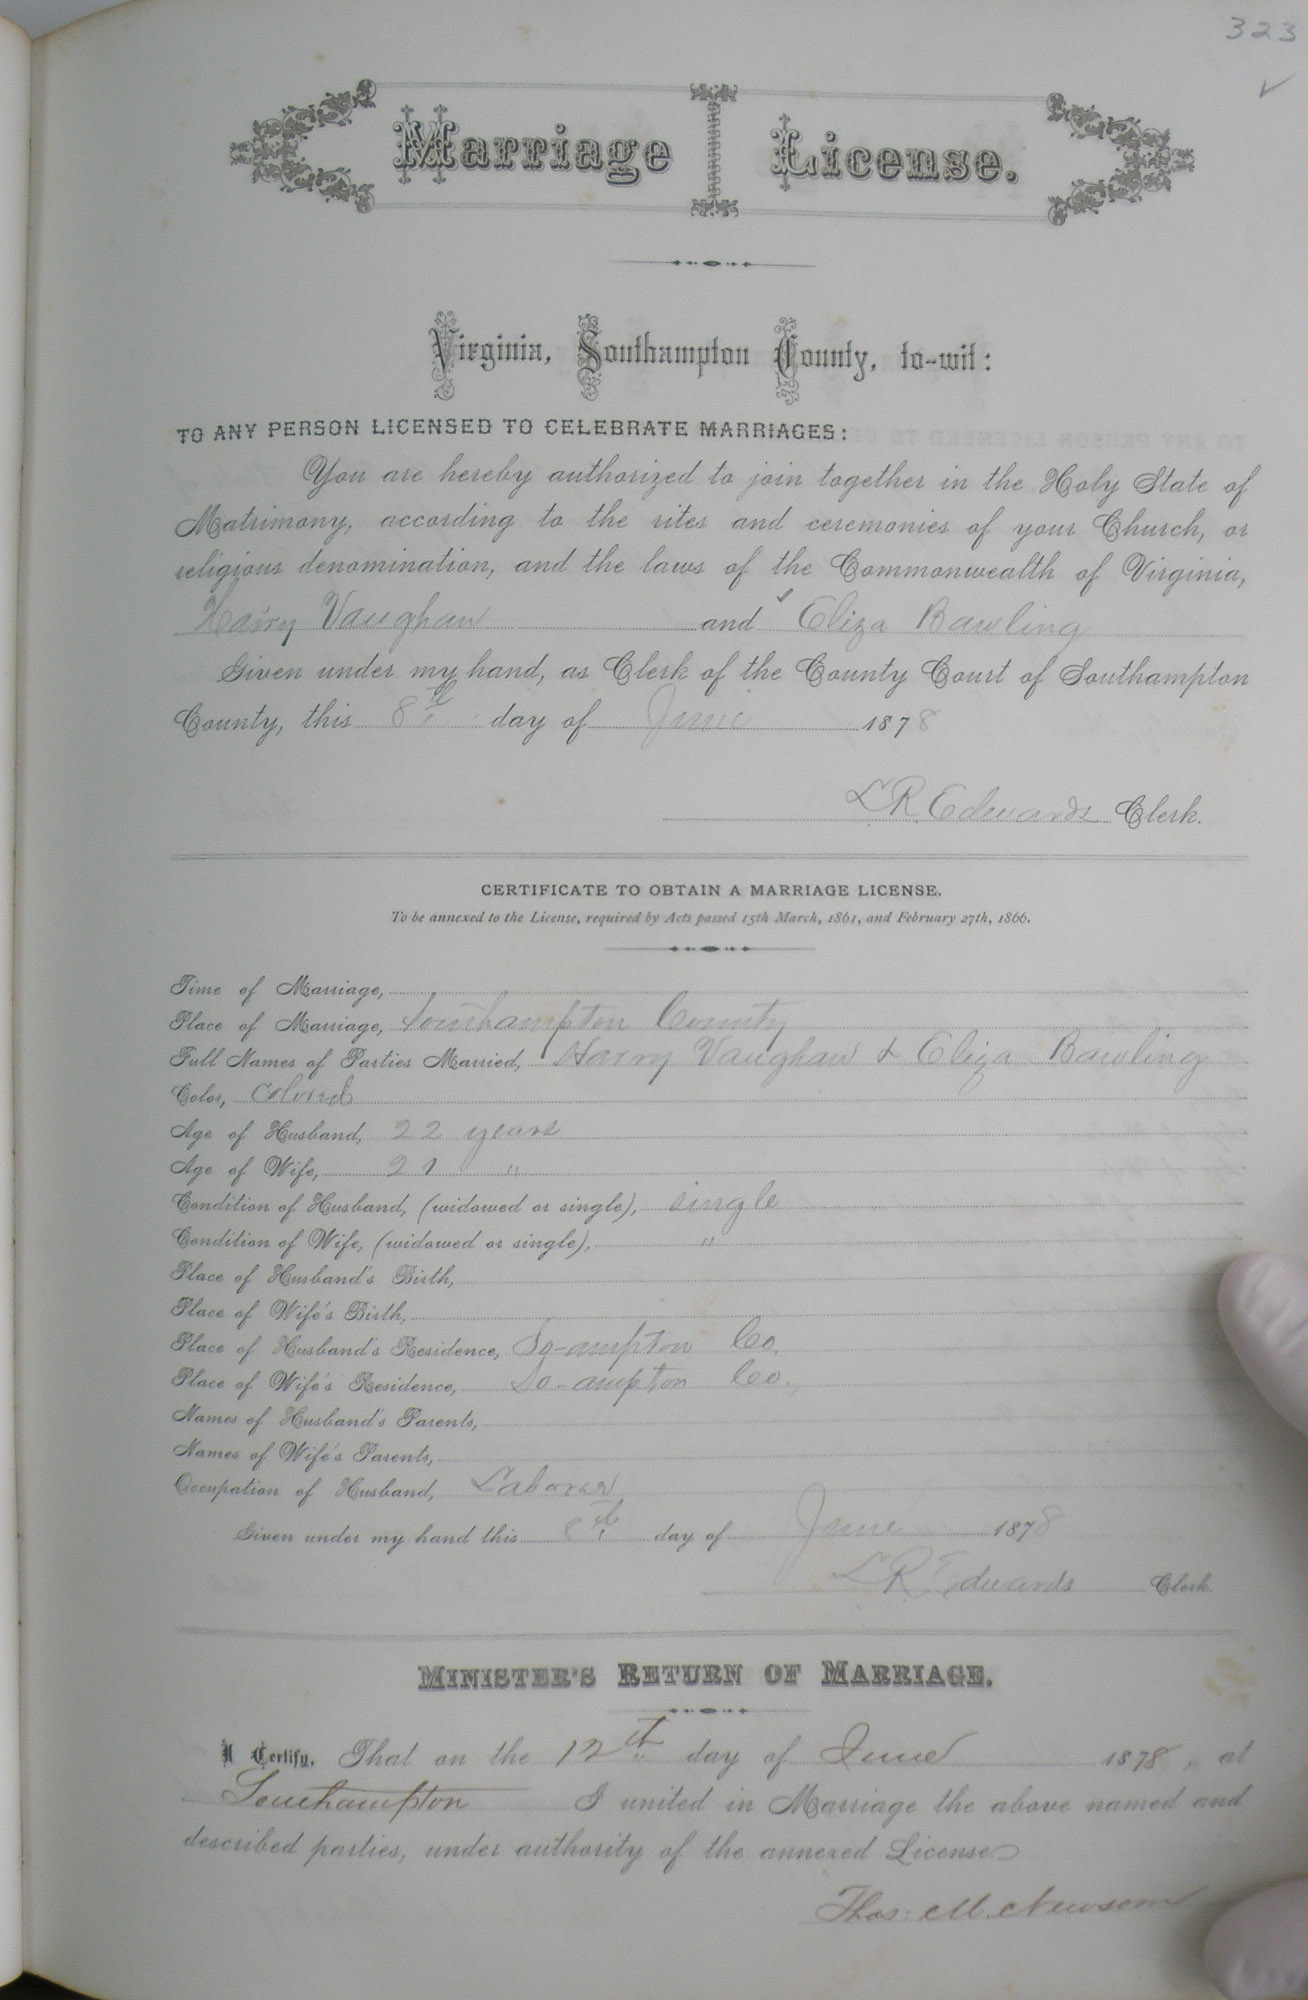 323
Marriage License.
Virginia, Southampton County, to-wit:
TO ANY PERSON LICENSED TO CELEBRATE MARRIAGES:
You are hereby authorized to join together in the Holy State of
Matrimony, according to the rites and ceremonies of your Church, or
religious denomination, and the laws of the Commonwealth of Virginia,
Harry Vaughan and Eliza Bawling
Given under my hand, as Clerk of the County Court of Southampton
County, this 8th day of June 1878
L R Edwards Clerk.
CERTIFICATE TO OBTAIN A MARRIAGE LICENSE.
To be annexed to the License, required by Acts passed 15th March, 1861, and February 27th, 1866.
Time of Marriage,
Place of Marriage, Southampton County
Full Names of Parties Married, Harry Vaughan & Eliza Bawling
Color, Colored
Age of Husband, 22 years
Age of Wife, 21 "
Condition of Husband, (widowed or single), single
Condition of Wife, (widowed or single), "
Place of Husband's Birth,
Place of Wife's Birth,
Place of Husband's Residence, So-ampton Co.
Place of Wife's Residence, So-ampton Co.
Names of Husband's Parents,
Names of Wife's Parents,
Occupation of Husband, Laborer
Given under my hand this 8th day of June 1878
L R Edwards Clerk
MINISTER'S RETURN OF MARRIAGE.
I Certify, That on the 12th day of June 1878, at
Southampton I united in Marriage the above named and
described parties, under authority of the annexed License
Thos: M. Newsom